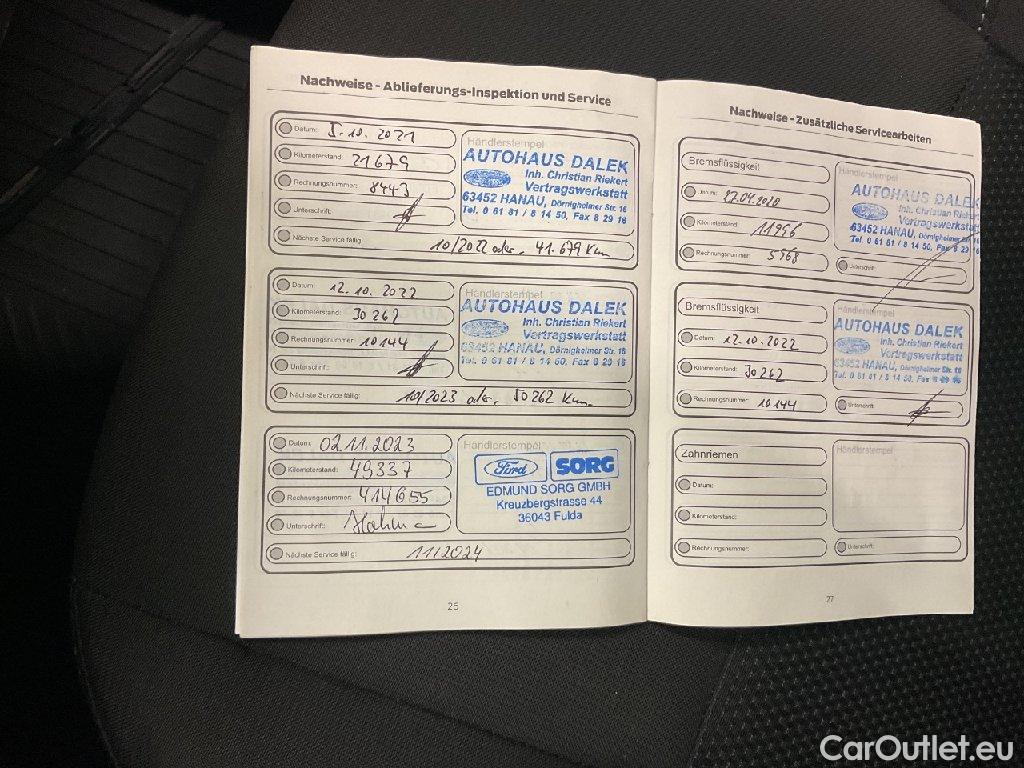 Nachweise - Ablieferungs-Inspektion und Service
Datum: 5.10.2021
Kilometerstand: 21679
Rechnungsnummer: 8443
Unterschrift:
Nächste Service fällig: 10/2022 oder 41.679 Km
Händlerstempel
AUTOHAUS DALEK
Inh. Christian Riekert
Vertragswerkstatt
63452 HANAU, Dörnigheimer Str. 16
Tel. 0 61 81 / 8 14 50, Fax 8 29 16
Datum: 12.10.2022
Kilometerstand: 30262
Rechnungsnummer: 10144
Unterschrift:
Nächste Service fällig: 10/2023 oder 50262 Km
Händlerstempel
AUTOHAUS DALEK
Inh. Christian Riekert
Vertragswerkstatt
63452 HANAU, Dörnigheimer Str. 16
Tel. 0 61 81 / 8 14 50, Fax 8 29 16
Datum: 02.11.2023
Kilometerstand: 49337
Rechnungsnummer: 414655
Unterschrift:
Nächste Service fällig: 11/2024
Händlerstempel
Ford SORG
EDMUND SORG GMBH
Kreuzbergstrasse 44
36043 Fulda
25
Nachweise - Zusätzliche Servicearbeiten
Bremsflüssigkeit
Datum:
Kilometerstand: 11956
Rechnungsnummer: 5968
Händlerstempel
AUTOHAUS DALEK
Inh. Christian Riekert
Vertragswerkstatt
63452 HANAU, Dörnigheimer Str. 16
Tel. 0 61 81 / 8 14 50, Fax 8 29 16
Unterschrift:
Bremsflüssigkeit
Datum: 12.10.2022
Kilometerstand: 30262
Rechnungsnummer: 10144
Händlerstempel
AUTOHAUS DALEK
Inh. Christian Riekert
Vertragswerkstatt
63452 HANAU, Dörnigheimer Str. 16
Tel. 0 61 81 / 8 14 50, Fax 8 29 16
Unterschrift:
Zahnriemen
Datum:
Kilometerstand:
Rechnungsnummer:
Händlerstempel
Unterschrift:
27
CarOutlet.eu